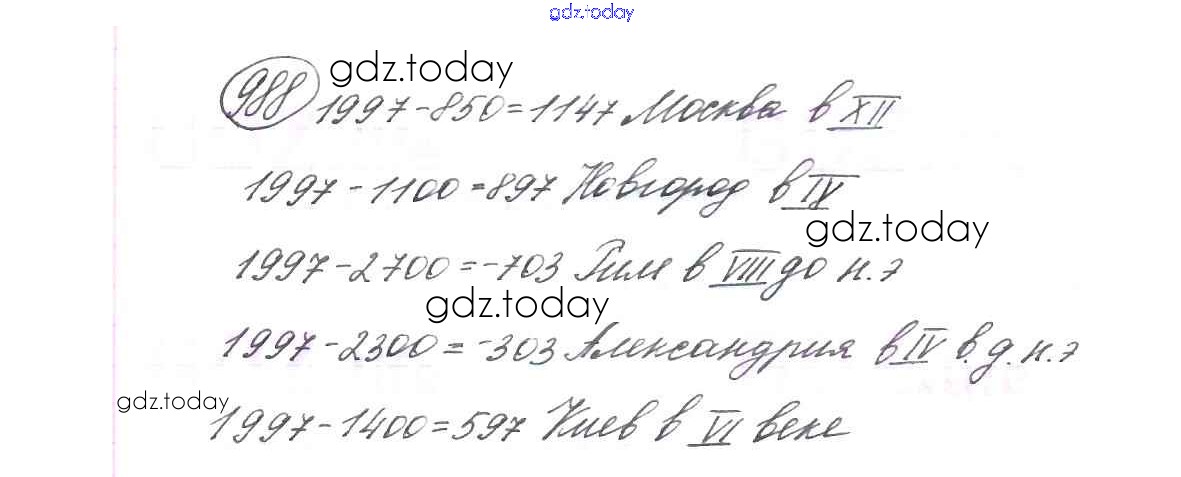 gdz.today
988 gdz.today
1997-850=1147 Москва в XII
1997-1100=897 Новгород в IX
gdz.today
1997-2700=-703 Рим в VIII до н.э
gdz.today
1997-2300=-303 Александрия в IV в. д. н. э
gdz.today
1997-1400=597 Киев в VI веке